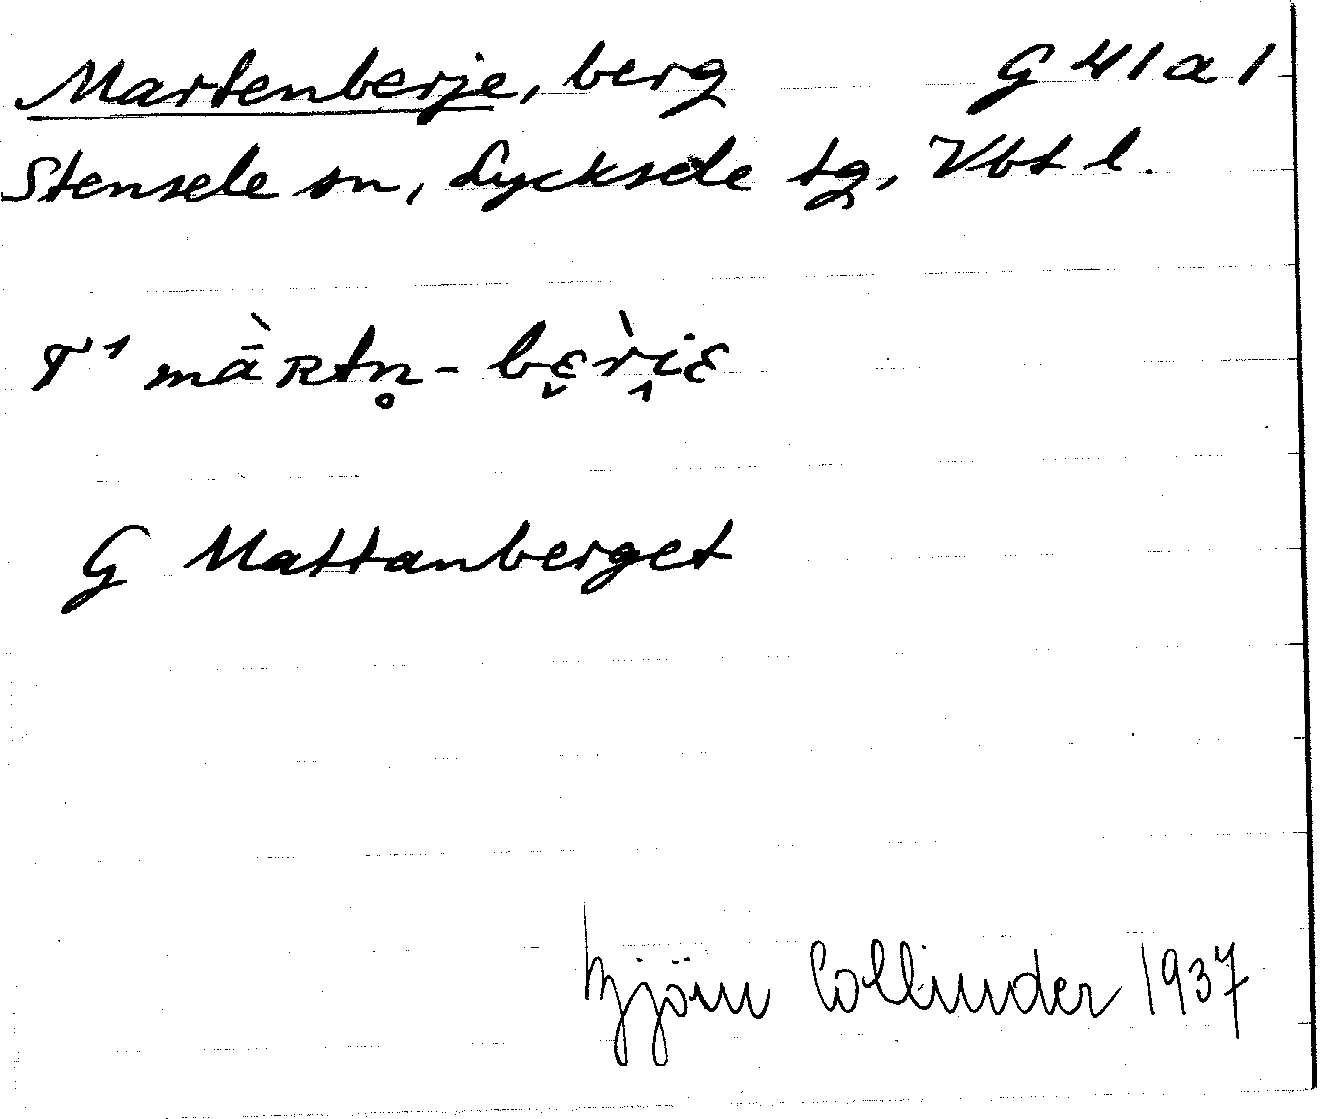 Martenberje, berg G 41 a 1
Stensele sn, Lycksele tg, Vbt l.
T¹ mā̀ʀtn̥-bɛ̬r̀i̭ɛ
G Mattanberget
Björn Collinder 1937